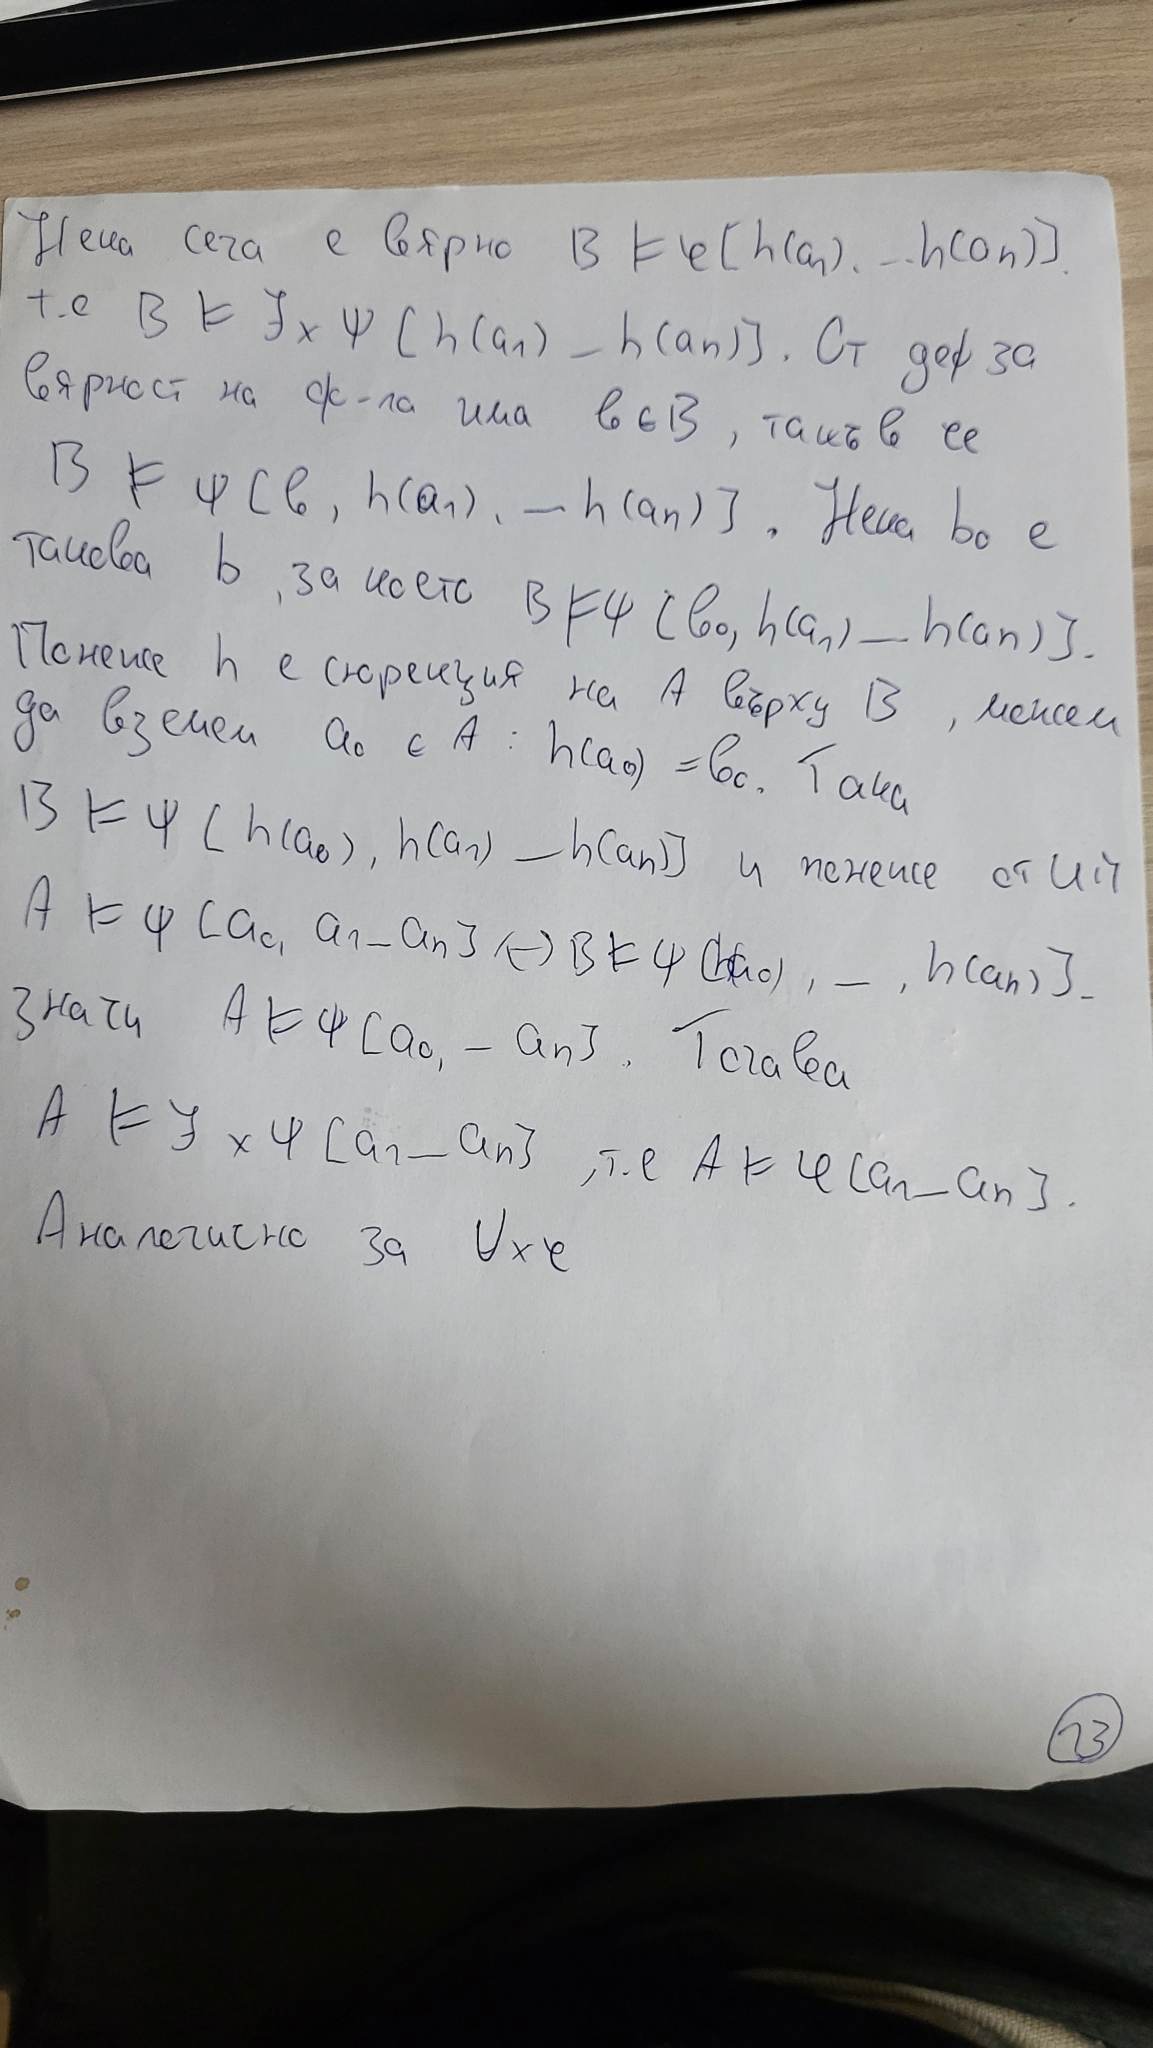 Нека сега е вярно B ⊨ φ[h(a₁), ...h(an)].
т.е B ⊨ ∃x ψ [h(a₁) _ h(an)]. От деф за
вярност на ф-ла има b ∈ B, такъв че
B ⊨ ψ [b, h(a₁), _ h(an)]. Нека b₀ е
такова b, за което B ⊨ ψ [b₀, h(a₁) _ h(an)].
Понеже h е сюрекция на A върху B, можем
да вземем a₀ ∈ A : h(a₀) = b₀. Така
B ⊨ ψ [h(a₀), h(a₁) _ h(an)] и понеже от ИП
A ⊨ ψ [a₀, a₁ _ an] ↔ B ⊨ ψ [h(a₀), _ , h(an)].
Значи A ⊨ ψ [a₀, _ an]. Тогава
A ⊨ ∃x ψ [a₁ _ an], т.е A ⊨ φ [a₁ _ an].
Аналогично за ∀xφ
13